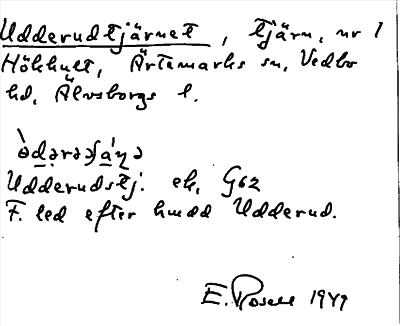 Udderudtjärnet, tjärn, nr 1
Hökhult, Ärtemarks sn, Vedbo
hd, Älvsborgs l.
Udderudstj. ek, G62
F. led efter hmdd Udderud.
E. Rosell 1949